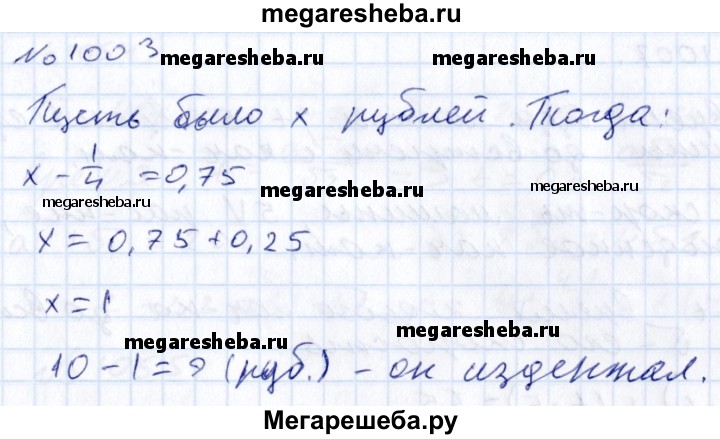 megaresheba.ru
№ 1003
megaresheba.ru megaresheba.ru
Пусть было x рублей. Тогда:
x - 1/4 = 0,75
megaresheba.ru megaresheba.ru
x = 0,75 + 0,25
x = 1
megaresheba.ru megaresheba.ru
10 - 1 = 9 (руб.) - он издержал.
Мегарешеба.ру